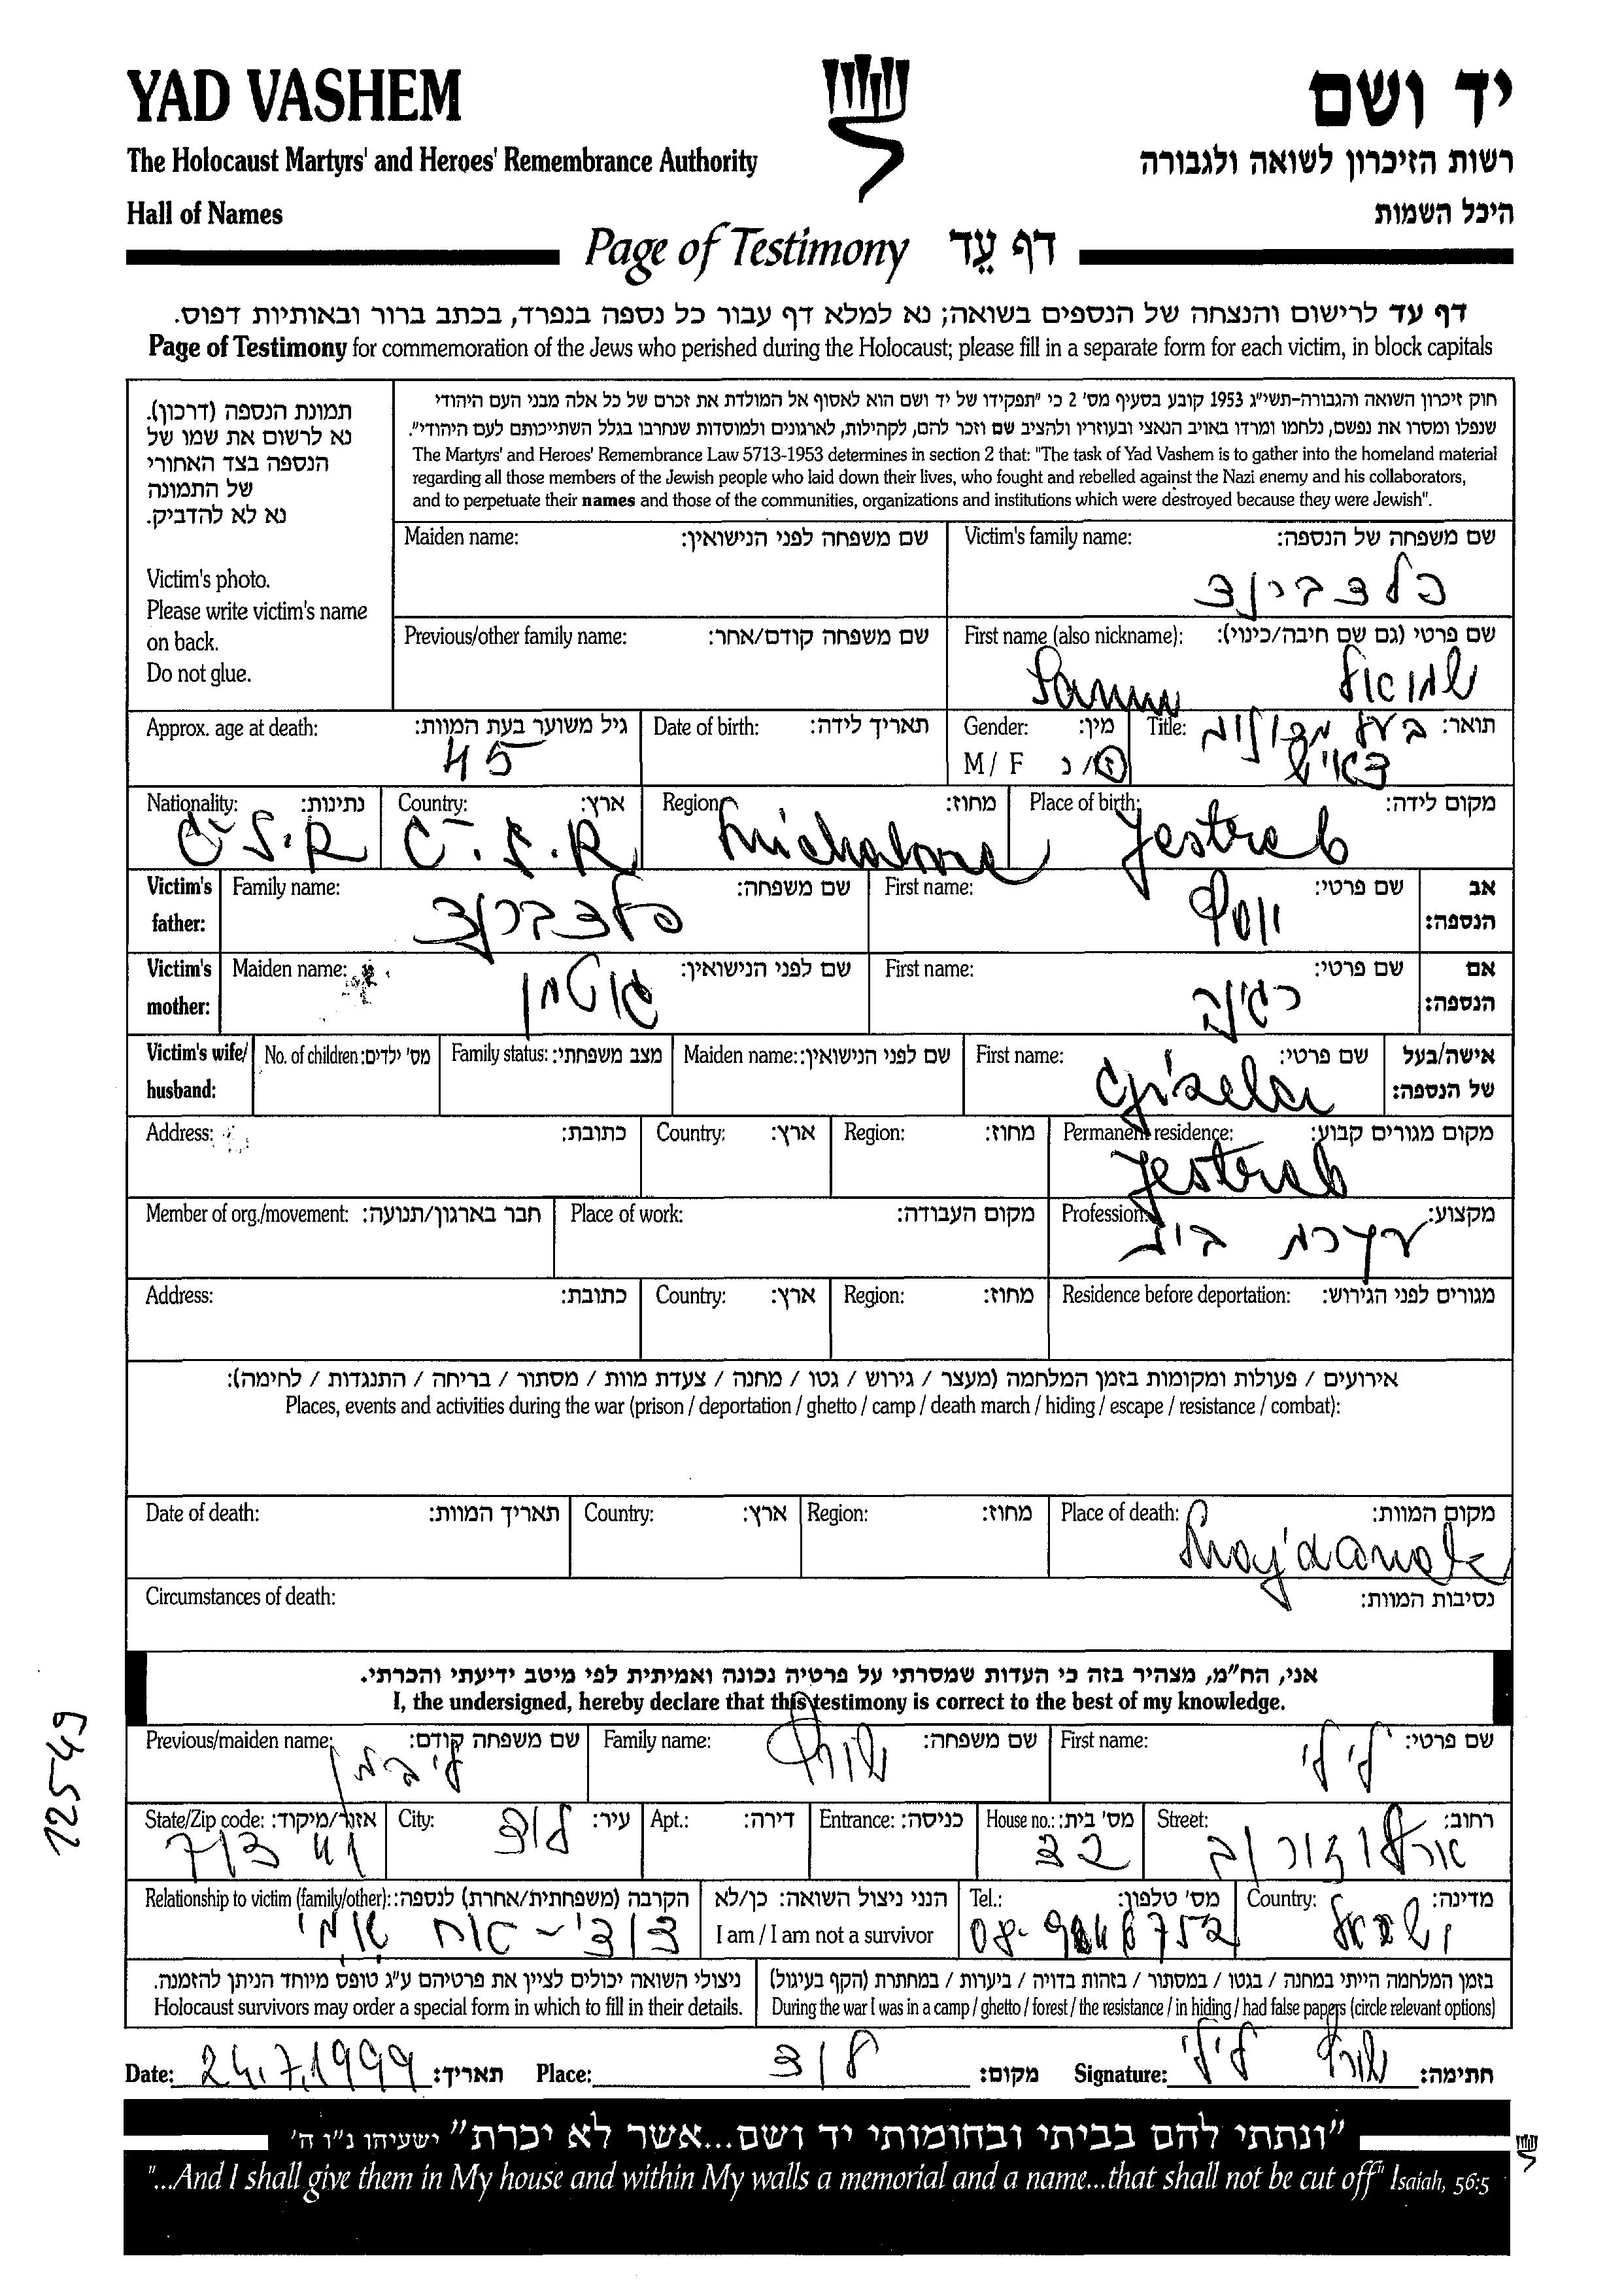 YAD VASHEM
יד ושם
The Holocaust Martyrs' and Heroes' Remembrance Authority
רשות הזיכרון לשואה ולגבורה
Hall of Names
היכל השמות
Page of Testimony דף עֵד
דף עד לרישום והנצחה של הנספים בשואה; נא למלא דף עבור כל נספה בנפרד, בכתב ברור ובאותיות דפוס.
Page of Testimony for commemoration of the Jews who perished during the Holocaust; please fill in a separate form for each victim, in block capitals
תמונת הנספה (דרכון).
נא לרשום את שמו של
הנספה בצד האחורי
של התמונה
נא לא להדביק.
Victim's photo.
Please write victim's name
on back.
Do not glue.
חוק זיכרון השואה והגבורה-תשי"ג 1953 קובע בסעיף מס' 2 כי "תפקידו של יד ושם הוא לאסוף אל המולדת את זכרם של כל אלה מבני העם היהודי
שנפלו ומסרו את נפשם, נלחמו ומרדו באויב הנאצי ובעוזריו ולהציב שם וזכר להם, לקהילות, לארגונים ולמוסדות שנחרבו בגלל השתייכותם לעם היהודי".
The Martyrs' and Heroes' Remembrance Law 5713-1953 determines in section 2 that: "The task of Yad Vashem is to gather into the homeland material
regarding all those members of the Jewish people who laid down their lives, who fought and rebelled against the Nazi enemy and his collaborators,
and to perpetuate their names and those of the communities, organizations and institutions which were destroyed because they were Jewish".
Victim's family name: שם משפחה של הנספה:
Maiden name: שם משפחה לפני הנישואין:
First name (also nickname): שם פרטי (גם שם חיבה/כינוי):
שמואל
Previous/other family name: שם משפחה קודם/אחר:
Title: תואר: בעל
Gender: מין:
M / F ז/נ
Date of birth: תאריך לידה:
Approx. age at death: גיל משוער בעת המוות:
45
Place of birth: מקום לידה:
Jestreb
Region: מחוז:
Country: ארץ:
Č.S.R
Nationality: נתינות:
Č S.R
Victim's father: אב הנספה:
First name: שם פרטי:
יוסף
Family name: שם משפחה:
Victim's mother: אם הנספה:
First name: שם פרטי:
רגינה
Maiden name: שם לפני הנישואין:
גוטמן
Victim's wife/ husband: אישה/בעל של הנספה:
First name: שם פרטי:
Gizela
Maiden name: שם לפני הנישואין:
Family status: מצב משפחתי:
No. of children: מס' ילדים:
Permanent residence: מקום מגורים קבוע:
Jestreb
Region: מחוז:
Country: ארץ:
Address: כתובת:
Profession: מקצוע:
עקרת בית
Place of work: מקום העבודה:
Member of org./movement: חבר בארגון/תנועה:
Residence before deportation: מגורים לפני הגירוש:
Region: מחוז:
Country: ארץ:
Address: כתובת:
אירועים / פעולות ומקומות בזמן המלחמה (מעצר / גירוש / גטו / מחנה / צעדת מוות / מסתור / בריחה / התנגדות / לחימה):
Places, events and activities during the war (prison / deportation / ghetto / camp / death march / hiding / escape / resistance / combat):
Place of death: מקום המוות:
Majdanek
Region: מחוז:
Country: ארץ:
Date of death: תאריך המוות:
Circumstances of death: נסיבות המוות:
אני, הח"מ, מצהיר בזה כי העדות שמסרתי על פרטיה נכונה ואמיתית לפי מיטב ידיעתי והכרתי.
I, the undersigned, hereby declare that this testimony is correct to the best of my knowledge.
First name: שם פרטי:
לילי
Family name: שם משפחה:
שורף
Previous/maiden name: שם משפחה קודם:
ליבמן
Street: רחוב:
ארלוזורוב
House no.: מס' בית:
22
Entrance: כניסה:
Apt.: דירה:
City: עיר:
לוד
State/Zip code: אזור/מיקוד:
Country: מדינה:
ישראל
Tel.: מס' טלפון:
הנני ניצול השואה: כן/לא
I am / I am not a survivor
Relationship to victim (family/other): הקרבה (משפחתית/אחרת) לנספה:
דודי - אח אמי
בזמן המלחמה הייתי במחנה / בגטו / במסתור / בזהות בדויה / ביערות / במחתרת (הקף בעיגול)
During the war I was in a camp / ghetto / forest / the resistance / in hiding / had false papers (circle relevant options)
ניצולי השואה יכולים לציין את פרטיהם ע"ג טופס מיוחד הניתן להזמנה.
Holocaust survivors may order a special form in which to fill in their details.
Date: 24.7.1999 תאריך: Place: לוד מקום: Signature: שורף לילי חתימה:
"ונתתי להם בביתי ובחומותי יד ושם...אשר לא יכרת" ישעיהו נ"ו ה'
"...And I shall give them in My house and within My walls a memorial and a name...that shall not be cut off" Isaiah, 56:5
12549